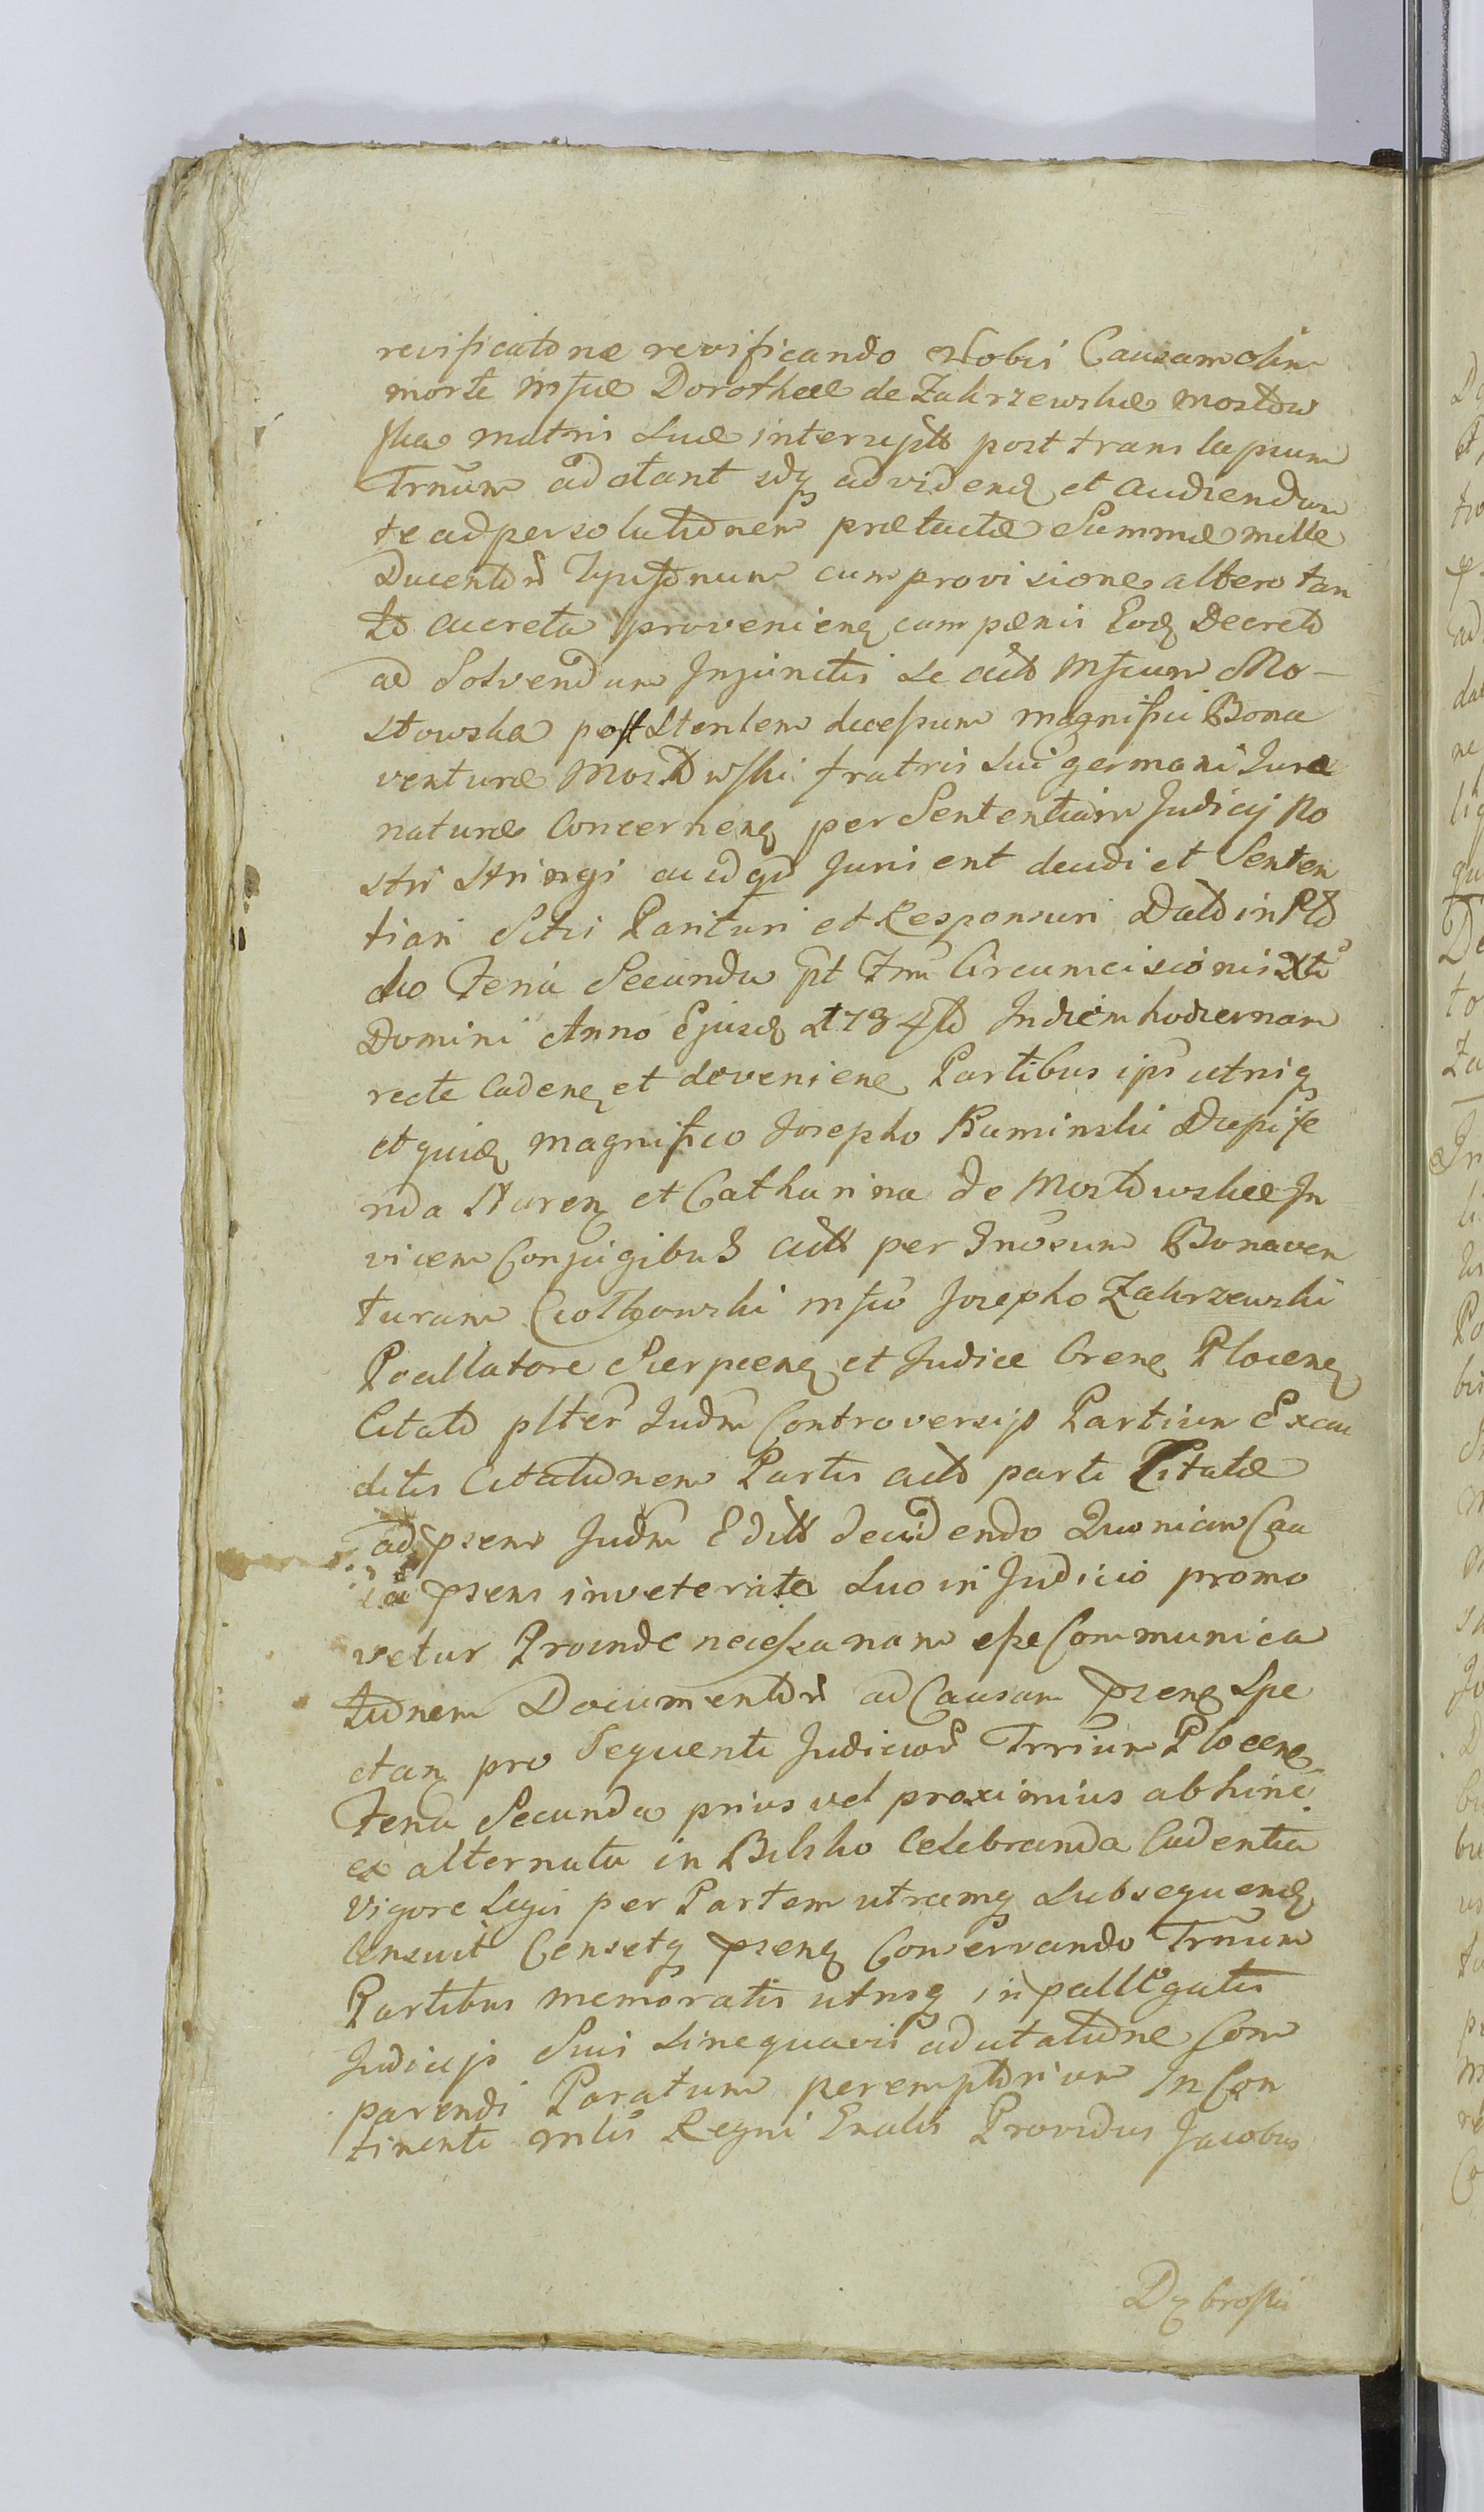 revificatōnæ revificando Nobis Causam olim
morte Mfcæ Dorotheæ de Zakrzewskie Mostow
ska matris suæ interrupt post translapsum
Trnūm adcitant idq ad videnq et audiendum
te ad persolutionem prætactæ Summæ mille
Ducentor Typfonum cum provisione altero tan
to accreta provenienq cum pænis Eodq Decreto
ad Solvendum Injunctis se acto Mfcum Mo-
stowska post sterilem decessum magnifici Bona
venturæ Mostowski fratris sui germani Jure
naturæ concernenq per Sententiam Judicij No
stri stringi ac id qd Juri erit decidi et Senten
tiari Sitis Parituri et Responsuri Dato in Pło
cko Feria Secunda pt Fm Circumcisionis Xti
Domini Anno Ejusdq 1784to In diem hodiernam
recte cadenq et devenienq Partibus ips utrisq
et quidq magnifico Josepho Kuminski Dapife
rida Staren et Catharina de Mostowskie In
vicem Conjugibus actt per Gnosum Bonaven
turam Ciołkowski mfco Josepho Zakrzewski
Pocillatore Sierpcenq et Judice Crenq Plocenq
Citato plter Judm Controversijs Partium Exau
ditis Citationem Partis acto parti Citatæ
ad psens Judm Editt decidendo Quoniam Cau
sa psens inveterata suo in Judicio promo
vetur Proinde necessariam esse Communica
tionem Documentor ad Causam psenq Spe
ctan pro Sequenti Judicior Trrium Plocenq
Feria Secunda prius vel proximius abhinc
ex alternata in Bilsko Celebranda Cadentia
vigore Legis per Partem utramq subsequendq
Censuit Censetq psenq Conservando Trnum
Partibus memoratis utrisq in pallegatis
Judicijs Suis sine quavis adcitatione Com
parendi Paratum peremptorium In Con
tinenti Mlis Regni Gnalis Providus Jacobus
Dąbroski